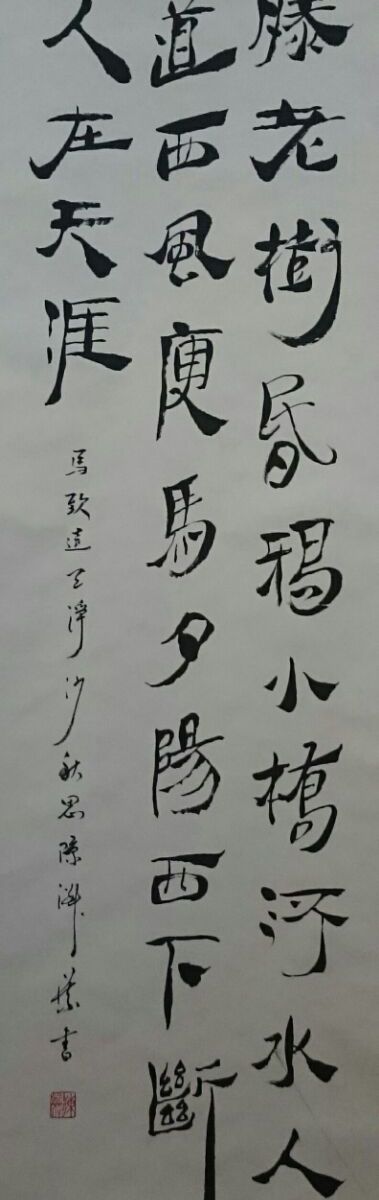 藤老樹昏鴉小橋河水人
道西風瘦馬夕陽西下斷
人在天涯
馬致遠天淨沙秋思陳
書